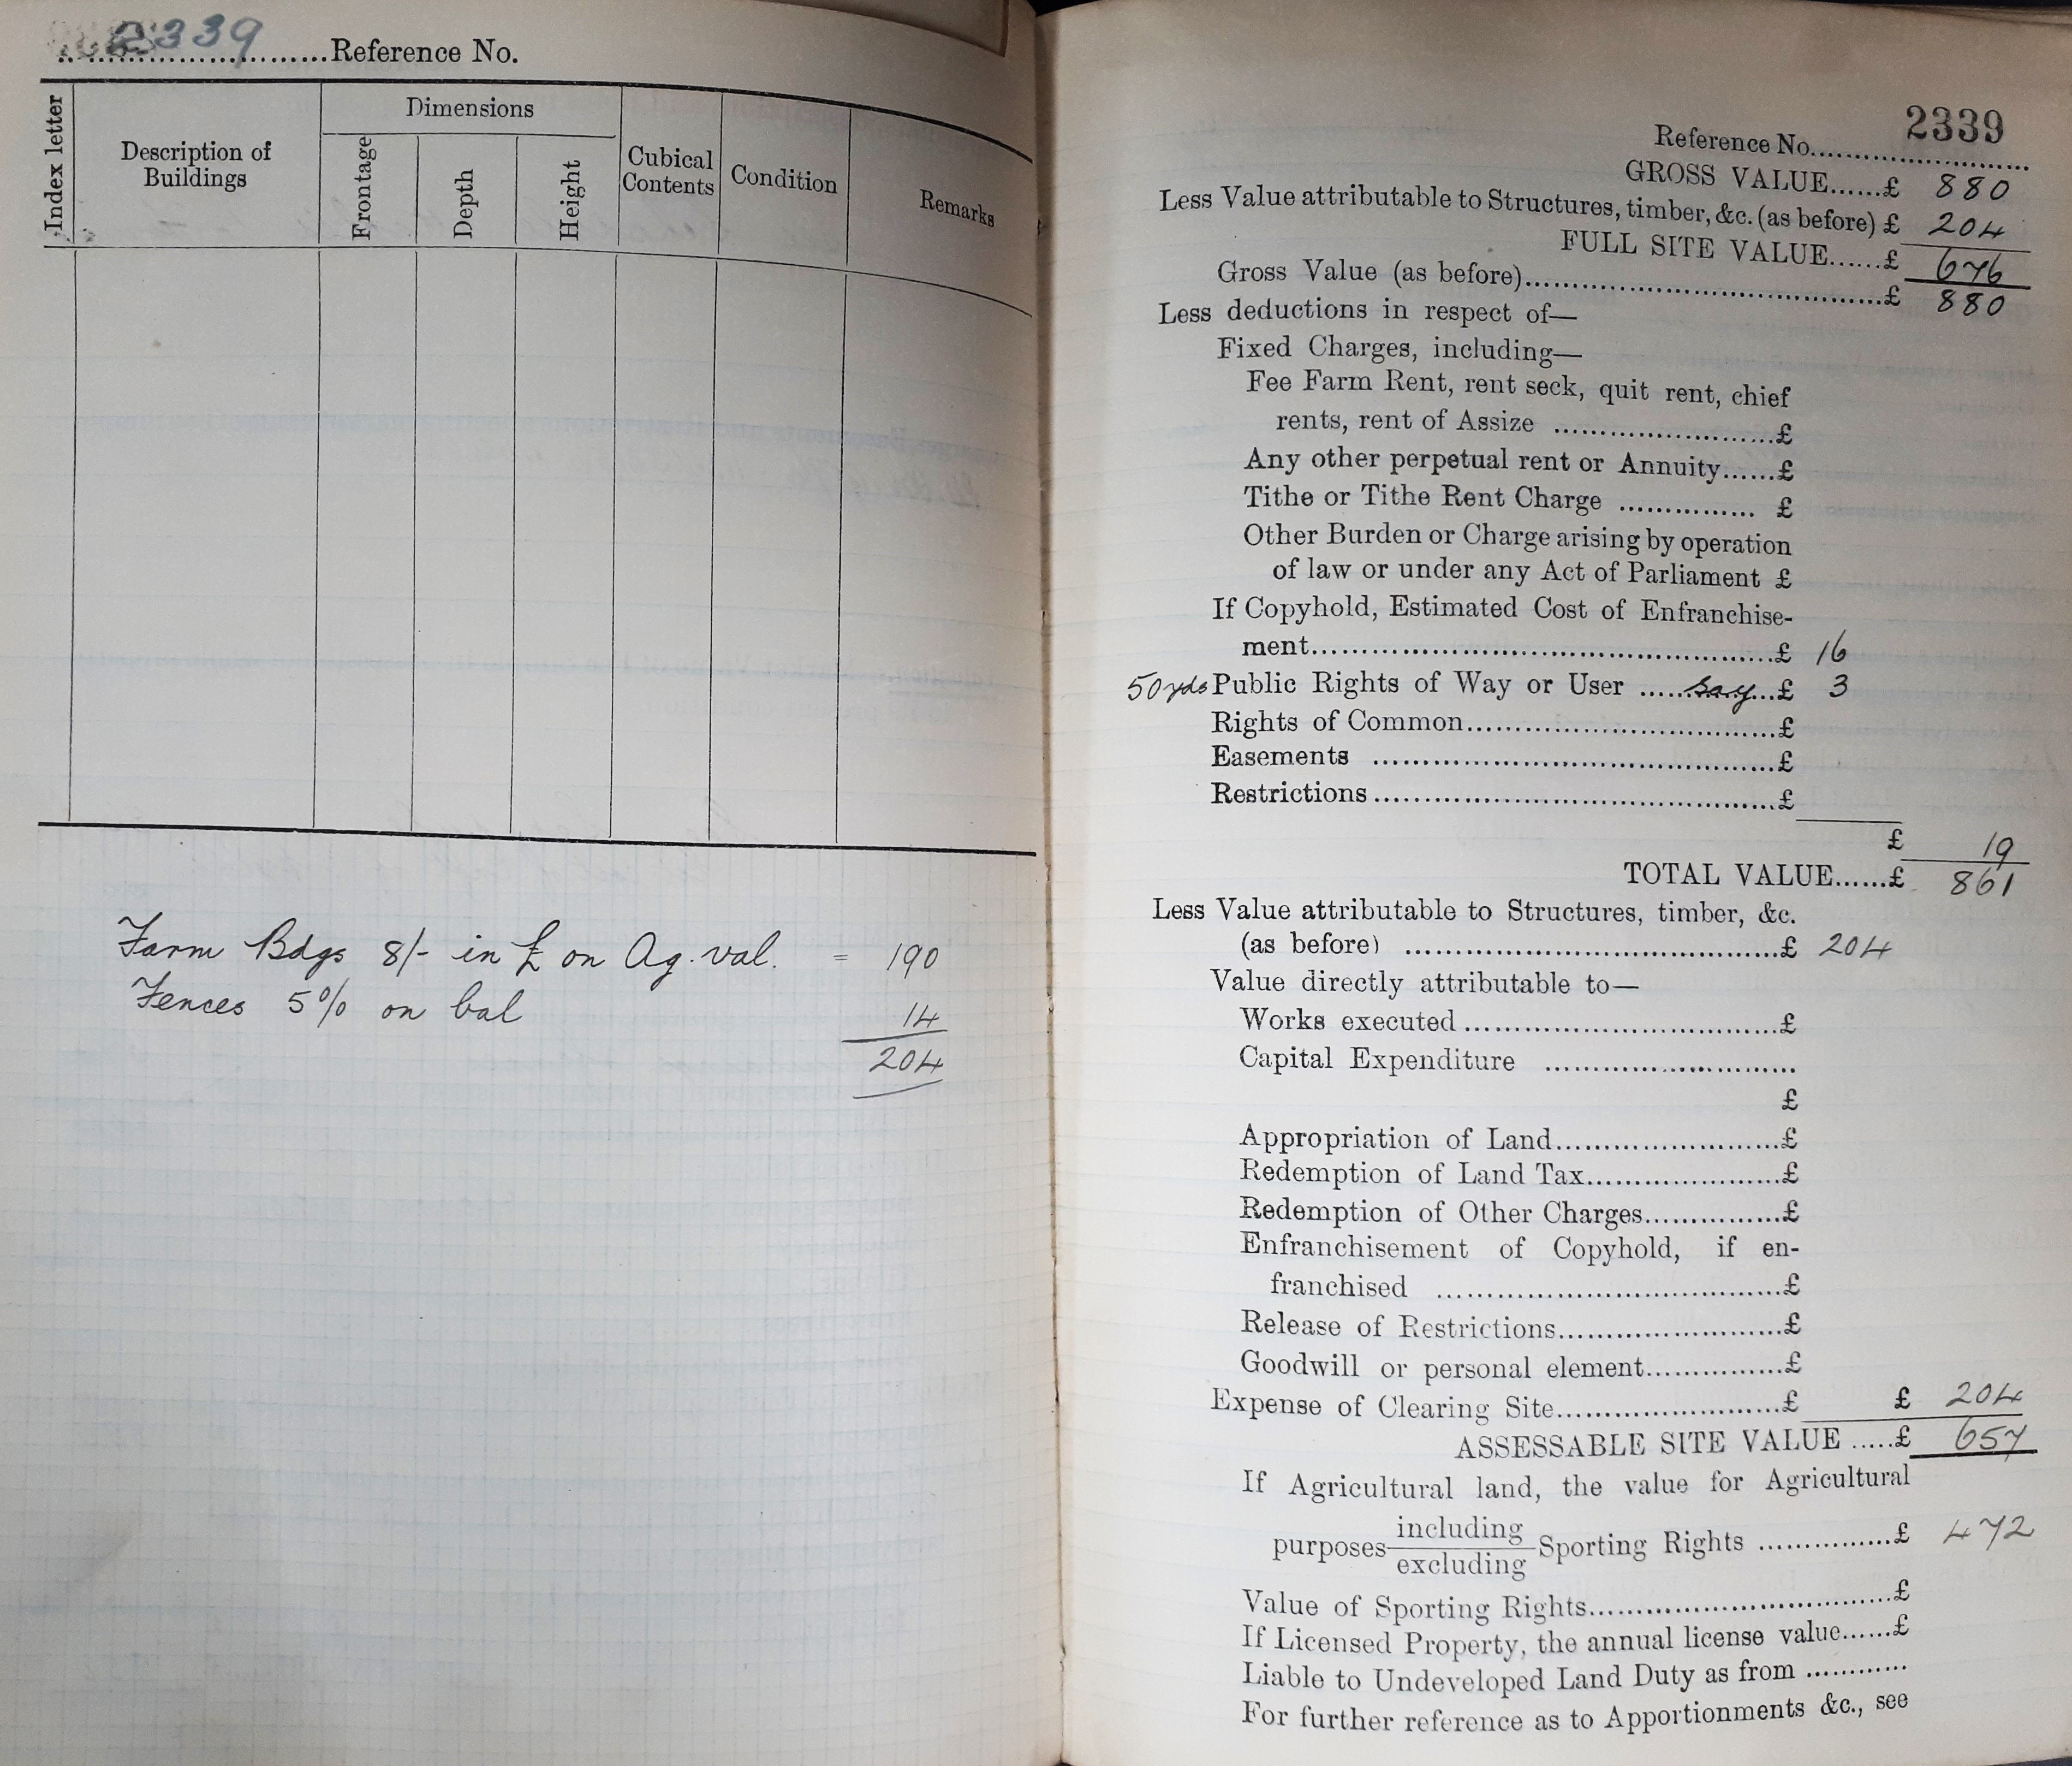 2339 Reference No.
Index letter
Description of
Buildings
Dimensions
Frontage
Depth
Height
Cubical
Contents
Condition
Remarks
Farm Bdgs 8/- in £ on Ag. val. = 190
Fences 5% on bal 14
204
Reference No. 2339
GROSS VALUE......£ 880
Less Value attributable to Structures, timber, &c. (as before) £ 204
FULL SITE VALUE......£ 676
Gross Value (as before)......£ 880
Less deductions in respect of—
Fixed Charges, including—
Fee Farm Rent, rent seck, quit rent, chief
rents, rent of Assize ......£
Any other perpetual rent or Annuity......£
Tithe or Tithe Rent Charge ...... £
Other Burden or Charge arising by operation
of law or under any Act of Parliament £
If Copyhold, Estimated Cost of Enfranchise-
ment......£ 16
50 yds Public Rights of Way or User ...... say ...£ 3
Rights of Common......£
Easements ......£
Restrictions......£
£ 19
TOTAL VALUE......£ 861
Less Value attributable to Structures, timber, &c.
(as before) ......£ 204
Value directly attributable to—
Works executed......£
Capital Expenditure ......
£
Appropriation of Land......£
Redemption of Land Tax......£
Redemption of Other Charges......£
Enfranchisement of Copyhold, if en-
franchised ......£
Release of Restrictions......£
Goodwill or personal element......£
Expense of Clearing Site......£ £ 204
ASSESSABLE SITE VALUE .....£ 657
If Agricultural land, the value for Agricultural
including
purposes Sporting Rights ......£ 472
excluding
Value of Sporting Rights......£
If Licensed Property, the annual license value......£
Liable to Undeveloped Land Duty as from ............
For further reference as to Apportionments &c., see